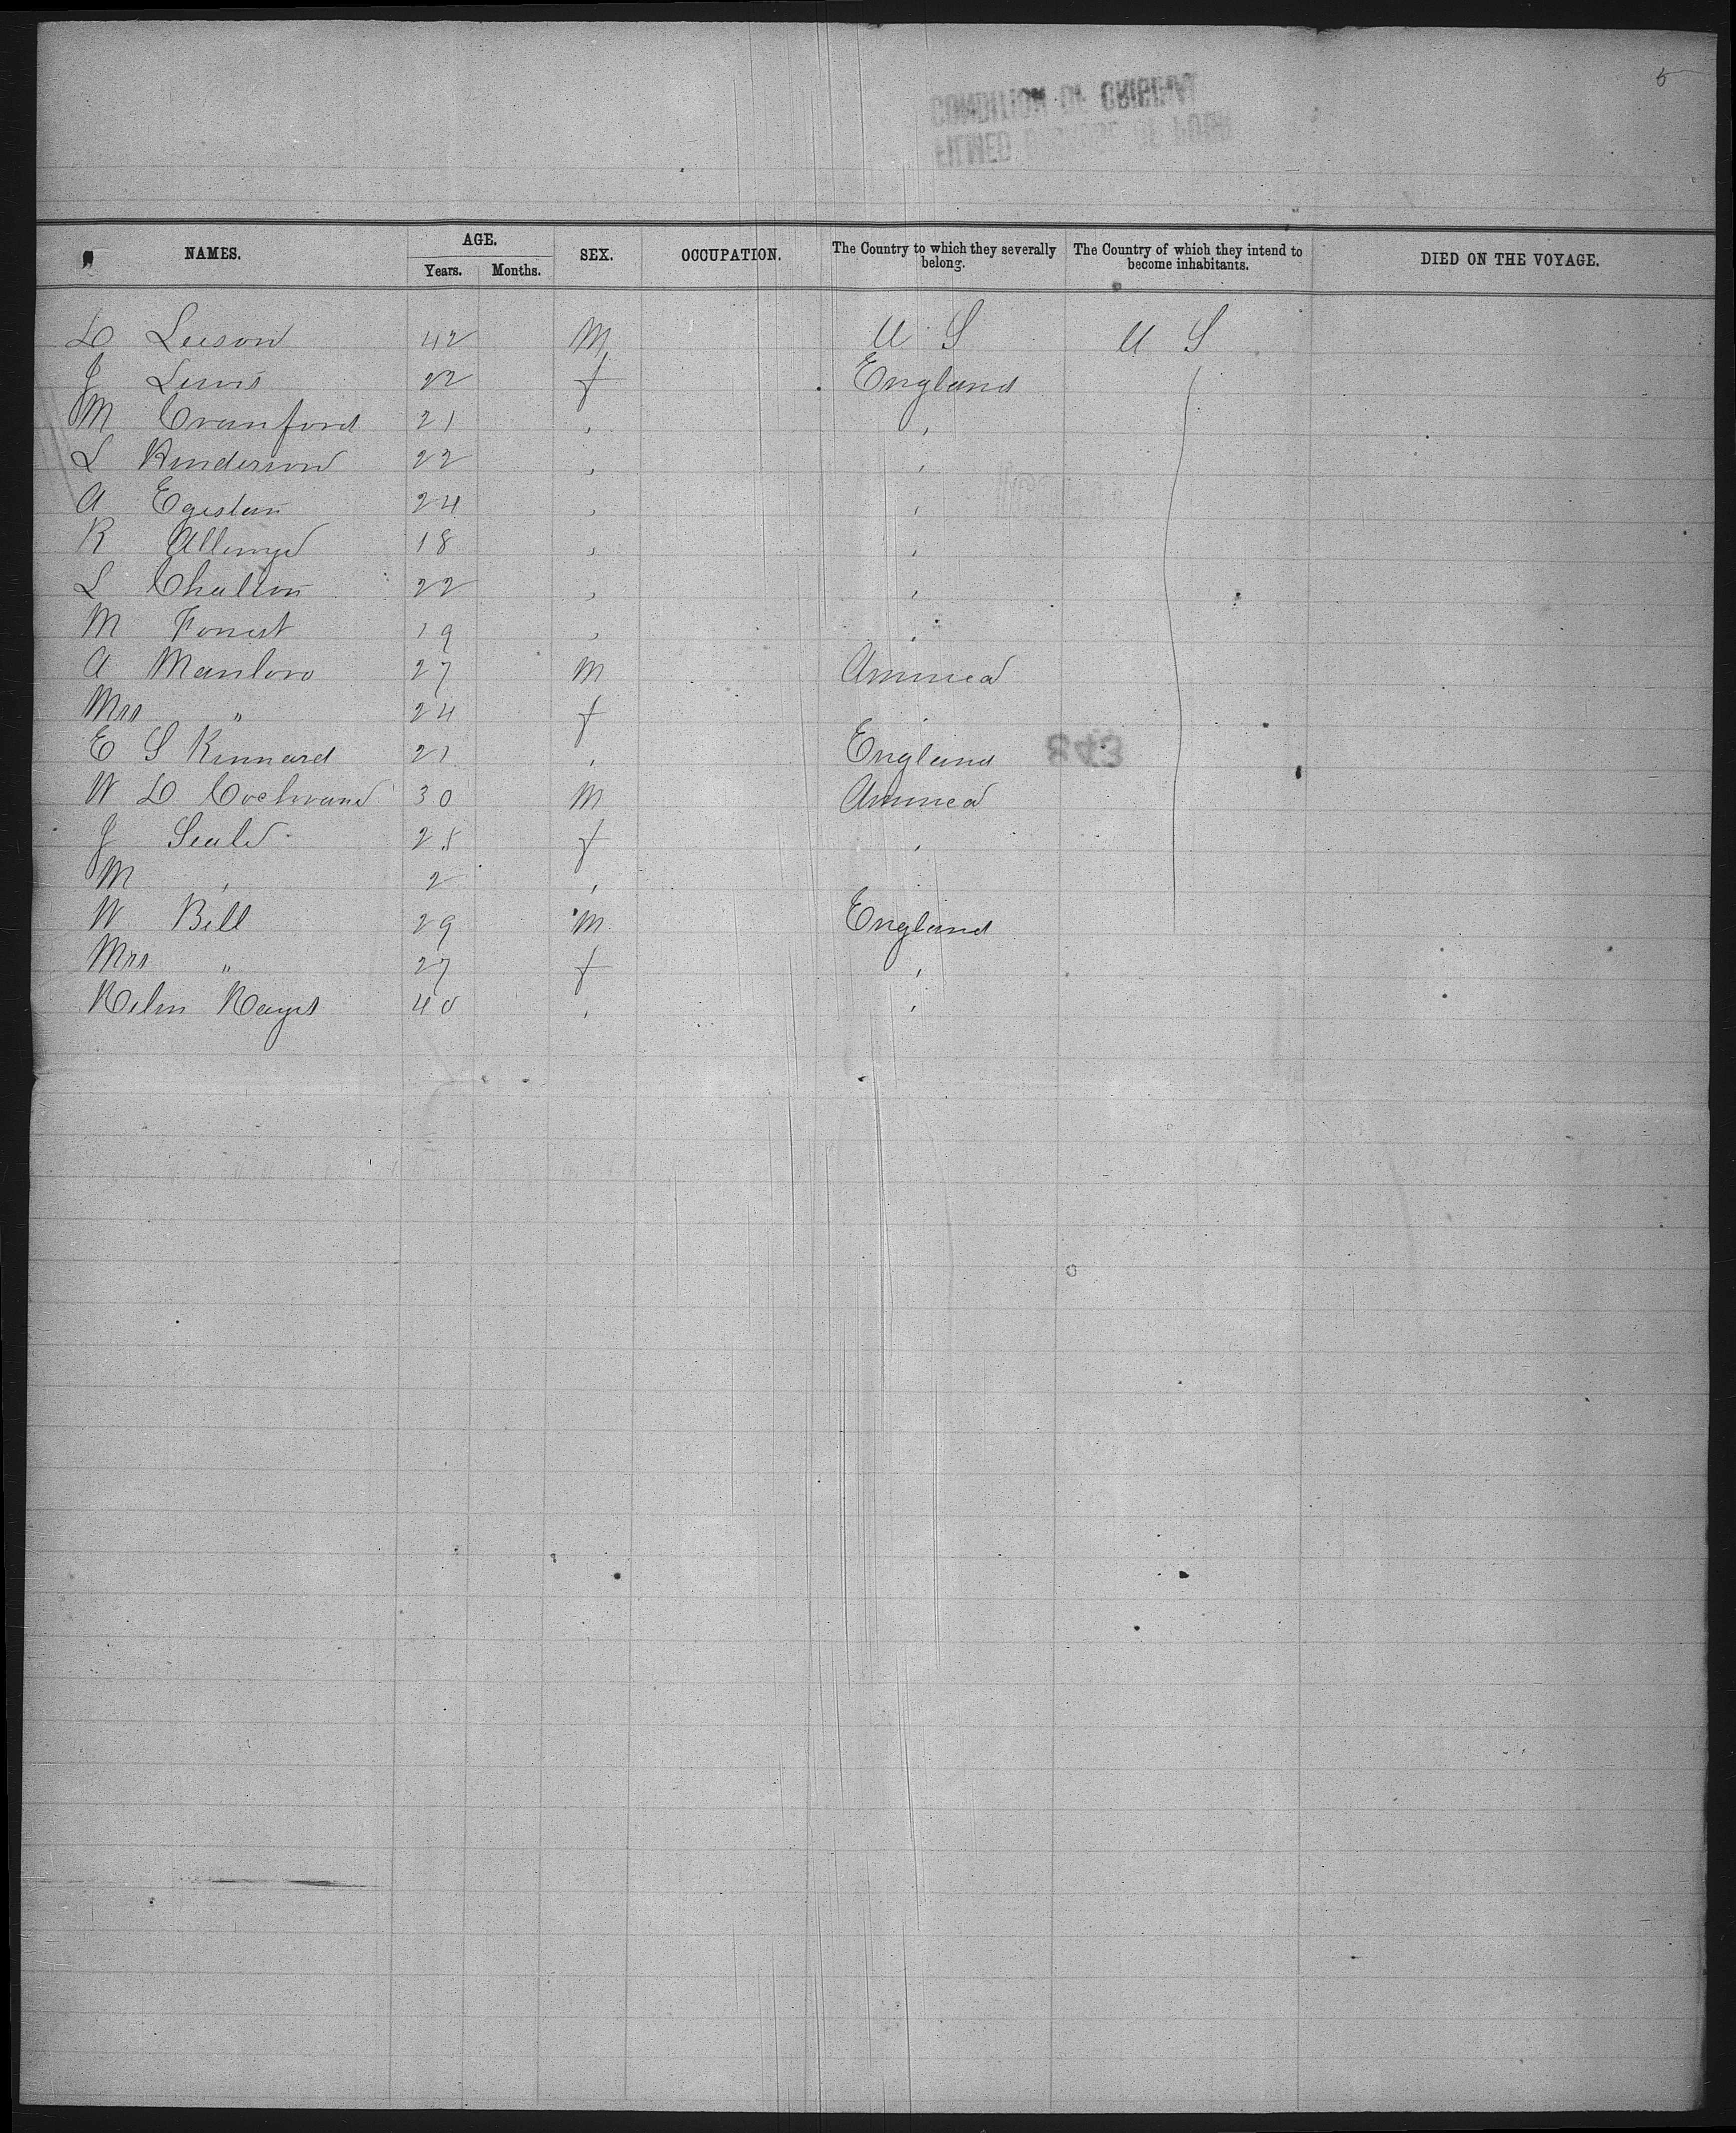 5
CONDITION OF ORIGINAL
FILMED
NAMES. AGE. Years. Months. SEX. OCCUPATION. The Country to which they severally belong. The Country of which they intend to become inhabitants. DIED ON THE VOYAGE.
42 M U S U S
J Lewis 22 f England
M Cranford 21 , ,
L Henderson 22 , ,
A 24 , ,
R 18 , ,
L Chalton 22 , ,
M Forrest 19 , ,
A Manlove 27 M America
Mrs " 24 f
E S Kinnard 21 , England
843
W D Cochrane 30 M America
J Seale 25 f ,
M , 2 ,
W Bell 29 M England
Mrs " 27 f ,
Helen Hayes 40 , ,